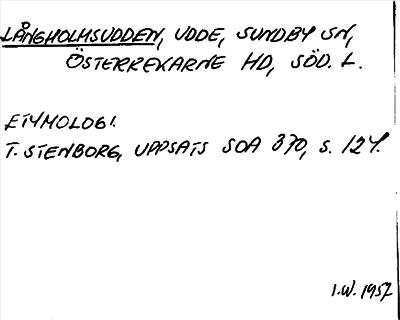 LÅNGHOLMSUDDEN, UDDE, SUNDBY SN,
ÖSTERREKARNE HD, SÖD. L.
ETYMOLOGI.
T. STENBORG, UPPSATS SOA 370, S. 124.
I.W. 1957